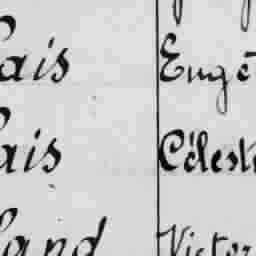 ais Eugè
ais Célest
land Victor